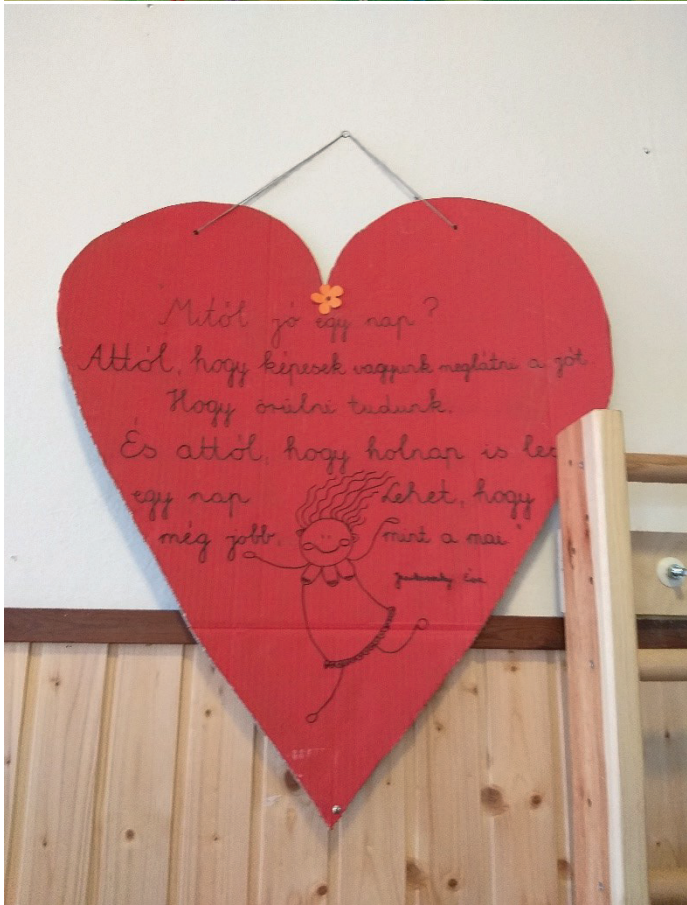 "Mitől jó egy nap?
Attól, hogy képesek vagyunk meglátni a jót.
Hogy örülni tudunk.
És attól, hogy holnap is
egy nap Lehet, hogy
még jobb, mint a mai"